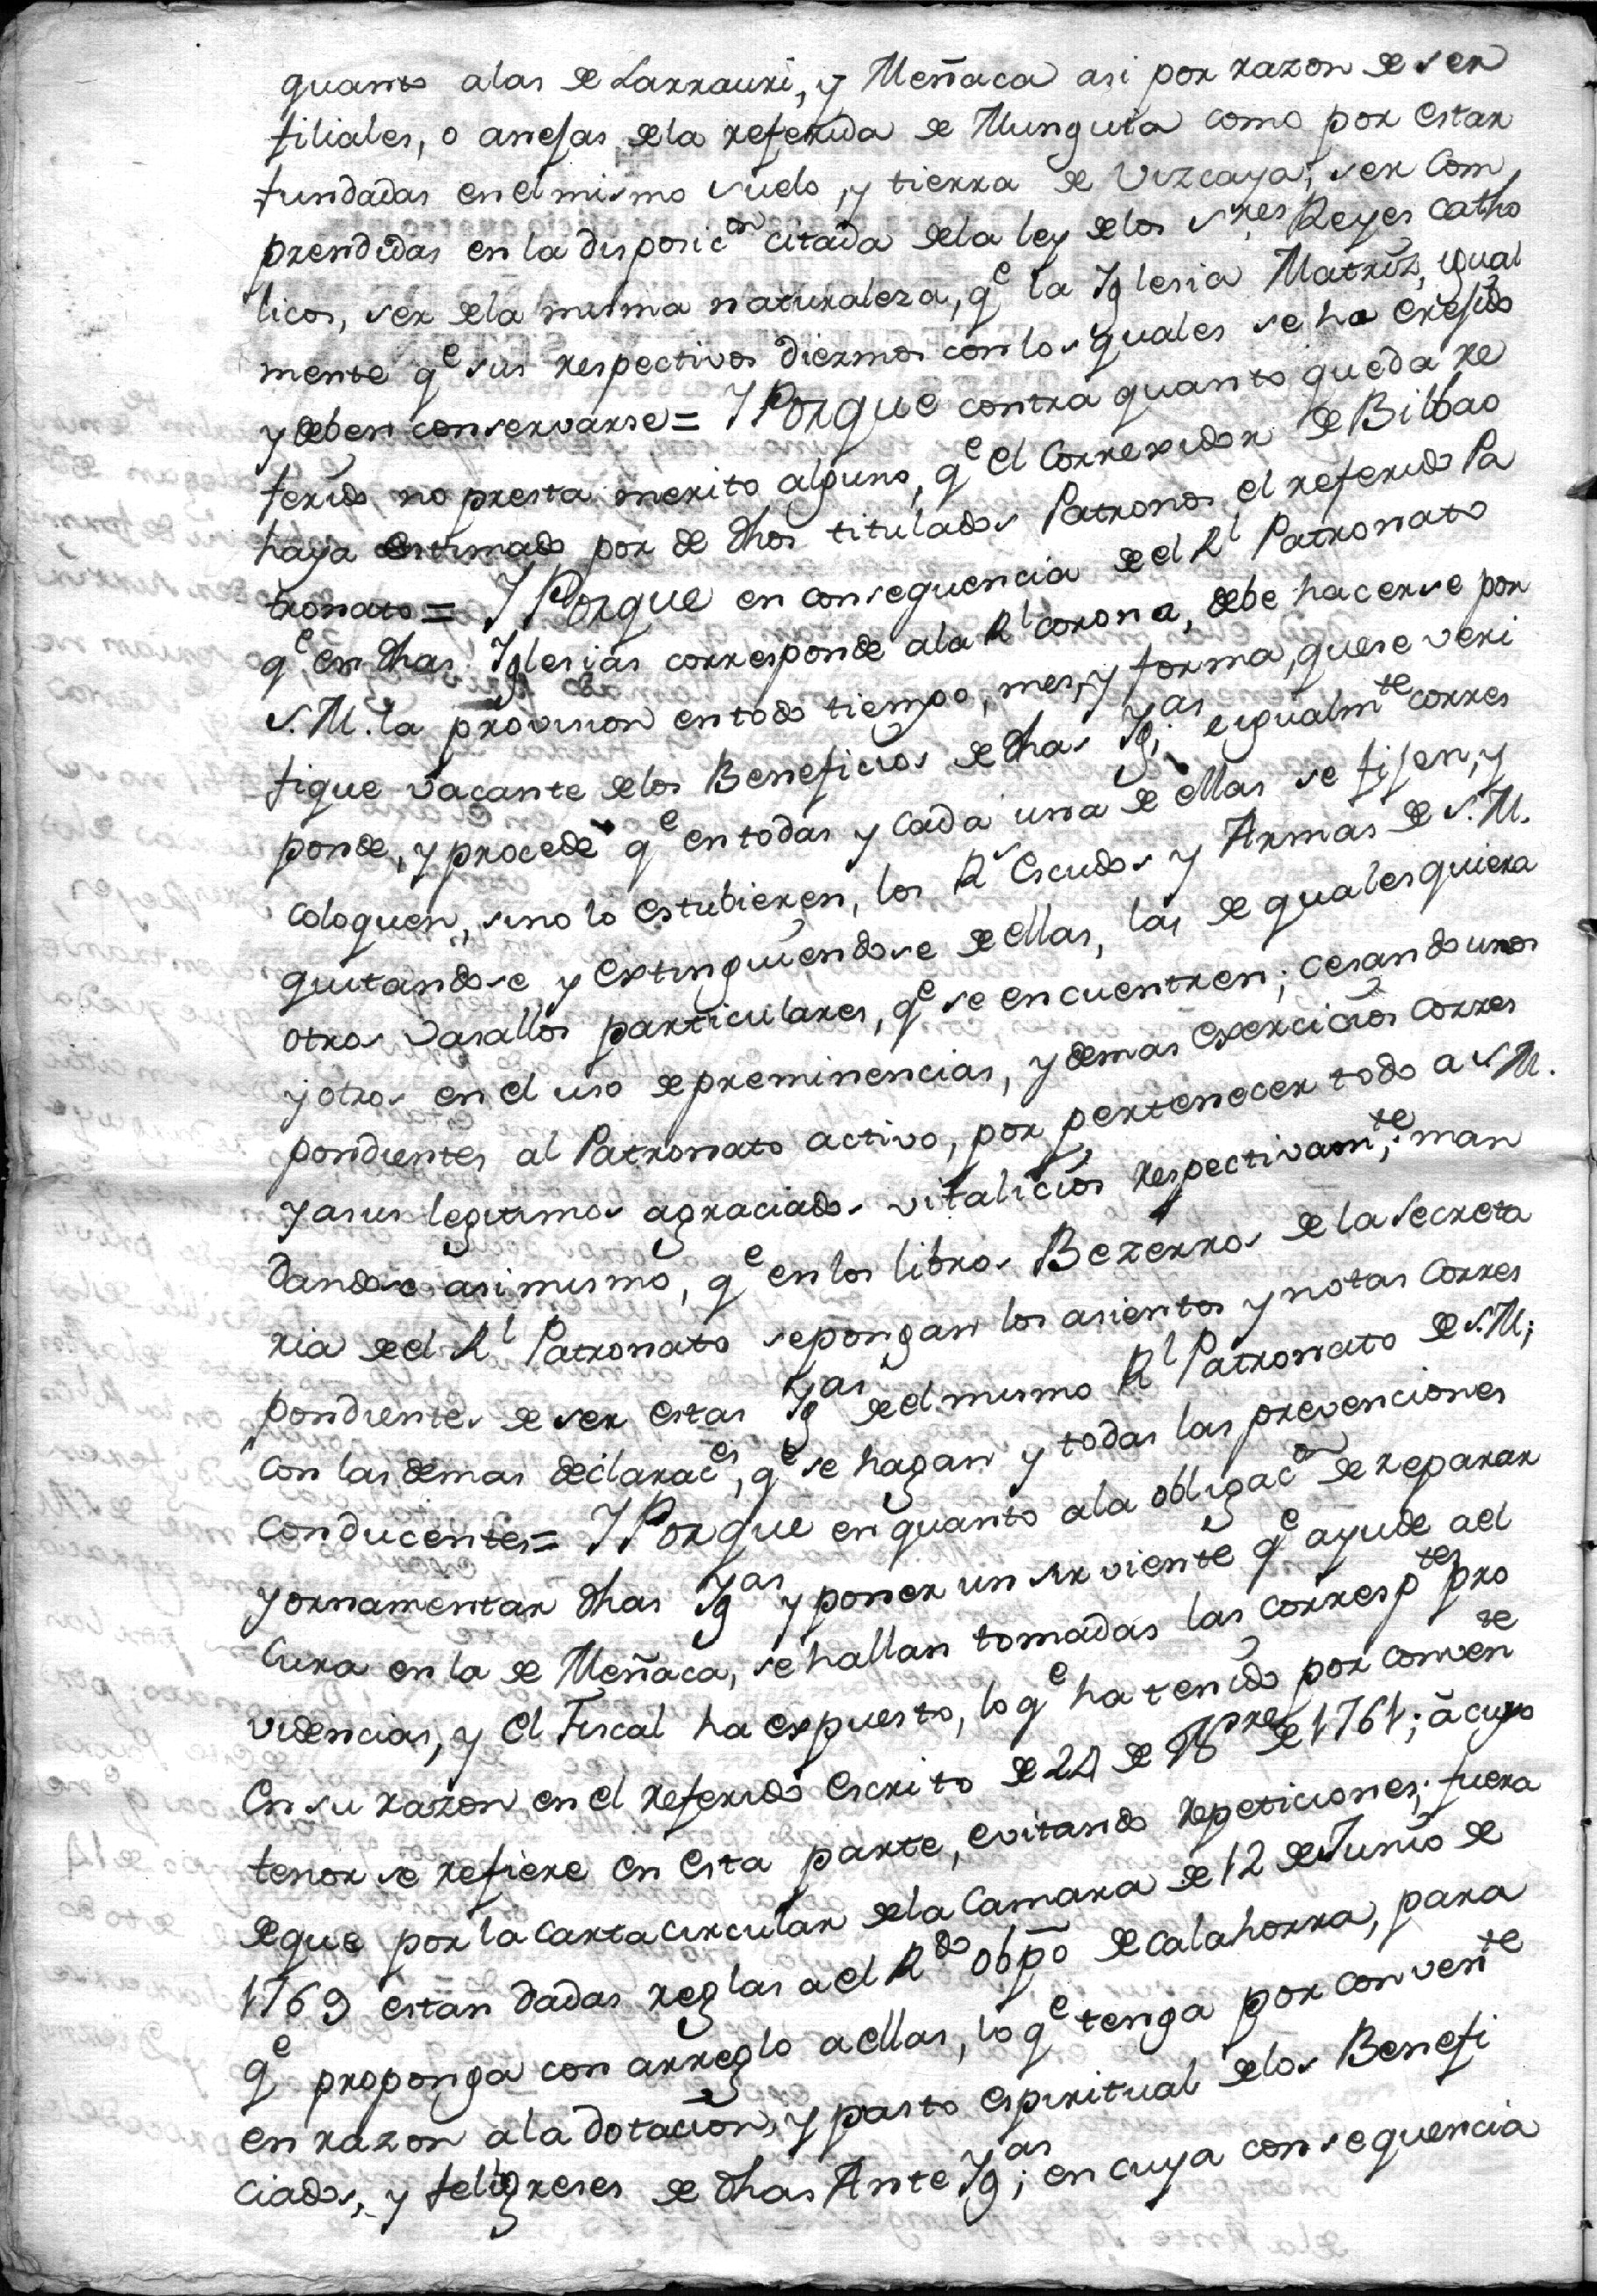 quanto alas de Larrauri, y Meñaca asi por razon de ser
filiales, o anejas dela referida de Munguia como por estar
fundadas en el mismo suelo, y tierra de Vizcaya; ser Com
prendidas en la disposicon citada dela ley delos Sres Reyes Catho
licos, ser dela misma naturaleza, qe la Iglesia Matriz, igual
mente qe sus respectivos diezmos con los quales se ha erejido
y deben conservarse = Y Porque contra quanto queda re
ferido no presta merito alguno, qe el Correxidor de Bilbao
haya estimado por de dhos titulados Patronos, el referido Pa
tronato = Y Porque en consequencia de el Rl Patronato
qe en dhas Iglesias corresponde ala Rl corona, debe hacerse por
S. M. la provision en todo tiempo, mes, y forma, que se veri
fique vacante delos Beneficios de dhas Igas; e igualmte corres
ponde, y procede qe en todas y cada una de ellas se fijen, y
coloquen, sino lo estubieren, los Rs Escudos y Armas de S. M.
quitandose y extinguiendose de ellas, las de qualesquiera
otros Vasallos particulares, qe se encuentren; cesando unos
y otros en el uso de preminencias, y demas exercicios corres
pondientes al Patronato activo, por pertenecer todo a S M.
y a sus legitimos agraciados vitalicios respectivamte; man
dandose asi mismo, qe en los libros Bezerros de la Secreta
ria de el Rl Patronato se pongan los asientos y notas corres
pondientes de ser estas Igas de el mismo Rl Patronato de S. M;
con las demas declaraces, qe se hagan y todas las prevenciones
conducentes = Y Porque en quanto ala obligacon de reparar
y ornamentar dhas Igas y poner un sirviente qe ayude ael
Cura en la de Meñaca, se hallan tomadas las correspteS pro
videncias, y el Fiscal ha expuesto, lo qe ha tenido por convente
en su razon en el referido escrito de 24 de Xbre de 1761; á cuyo
tenor se refiere en esta parte, evitando repeticiones; fuera
de que por la carta circular dela Camara de 12 de Junio de
1769 estan dadas reglas a el Rdo Obpo de Calahorra, para
qe proponga con arreglo a ellas, lo qe tenga por convente
en razon ala dotacion, y pasto espiritual delos Benefi
ciados, y feligreses de dhas Ante Igas; en cuya consequencia